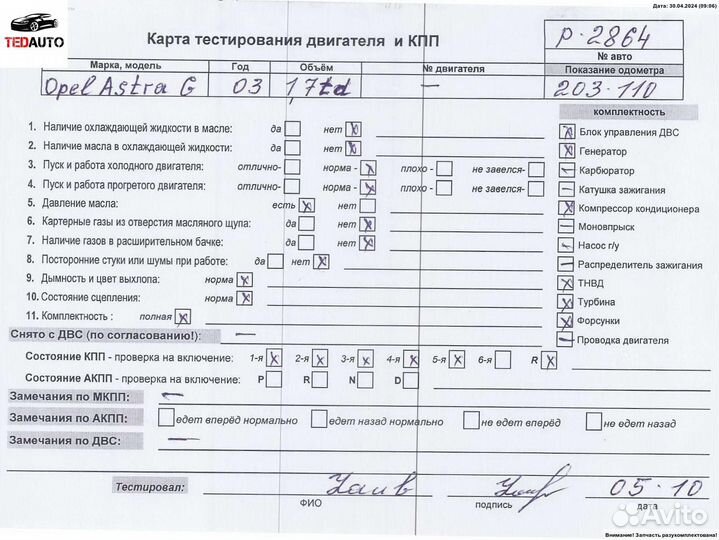 Дата: 30.04.2024 (09:06)
TEDAUTO
Карта тестирования двигателя и КПП
P-2864
№ авто
Марка, модель Год Объём № двигателя Показание одометра
Opel Astra G 03 1,7td — 203.110
комплектность
1. Наличие охлаждающей жидкости в масле: да нет X
2. Наличие масла в охлаждающей жидкости: да нет X
3. Пуск и работа холодного двигателя: отлично- норма - X плохо - не завелся-
4. Пуск и работа прогретого двигателя: отлично- норма - X плохо - не завелся-
5. Давление масла: есть X нет
6. Картерные газы из отверстия масляного щупа: да нет X
7. Наличие газов в расширительном бачке: да нет X
8. Посторонние стуки или шумы при работе: да нет X
9. Дымность и цвет выхлопа: норма X
10. Состояние сцепления: норма X
11. Комплектность : полная X
X Блок управления ДВС
X Генератор
— Карбюратор
— Катушка зажигания
X Компрессор кондиционера
— Моновпрыск
— Насос г/у
— Распределитель зажигания
X ТНВД
X Турбина
X Форсунки
— Проводка двигателя
Снято с ДВС (по согласованию!): —
Состояние КПП - проверка на включение: 1-я X 2-я X 3-я X 4-я X 5-я X 6-я R X
Состояние АКПП - проверка на включение: P R N D
Замечания по МКПП: —
Замечания по АКПП: едет вперёд нормально едет назад нормально не едет вперёд не едет назад
Замечания по ДВС: —
Тестировал: 05.10
ФИО подпись дата
Avito
Внимание! Запчасть разукомплектована!